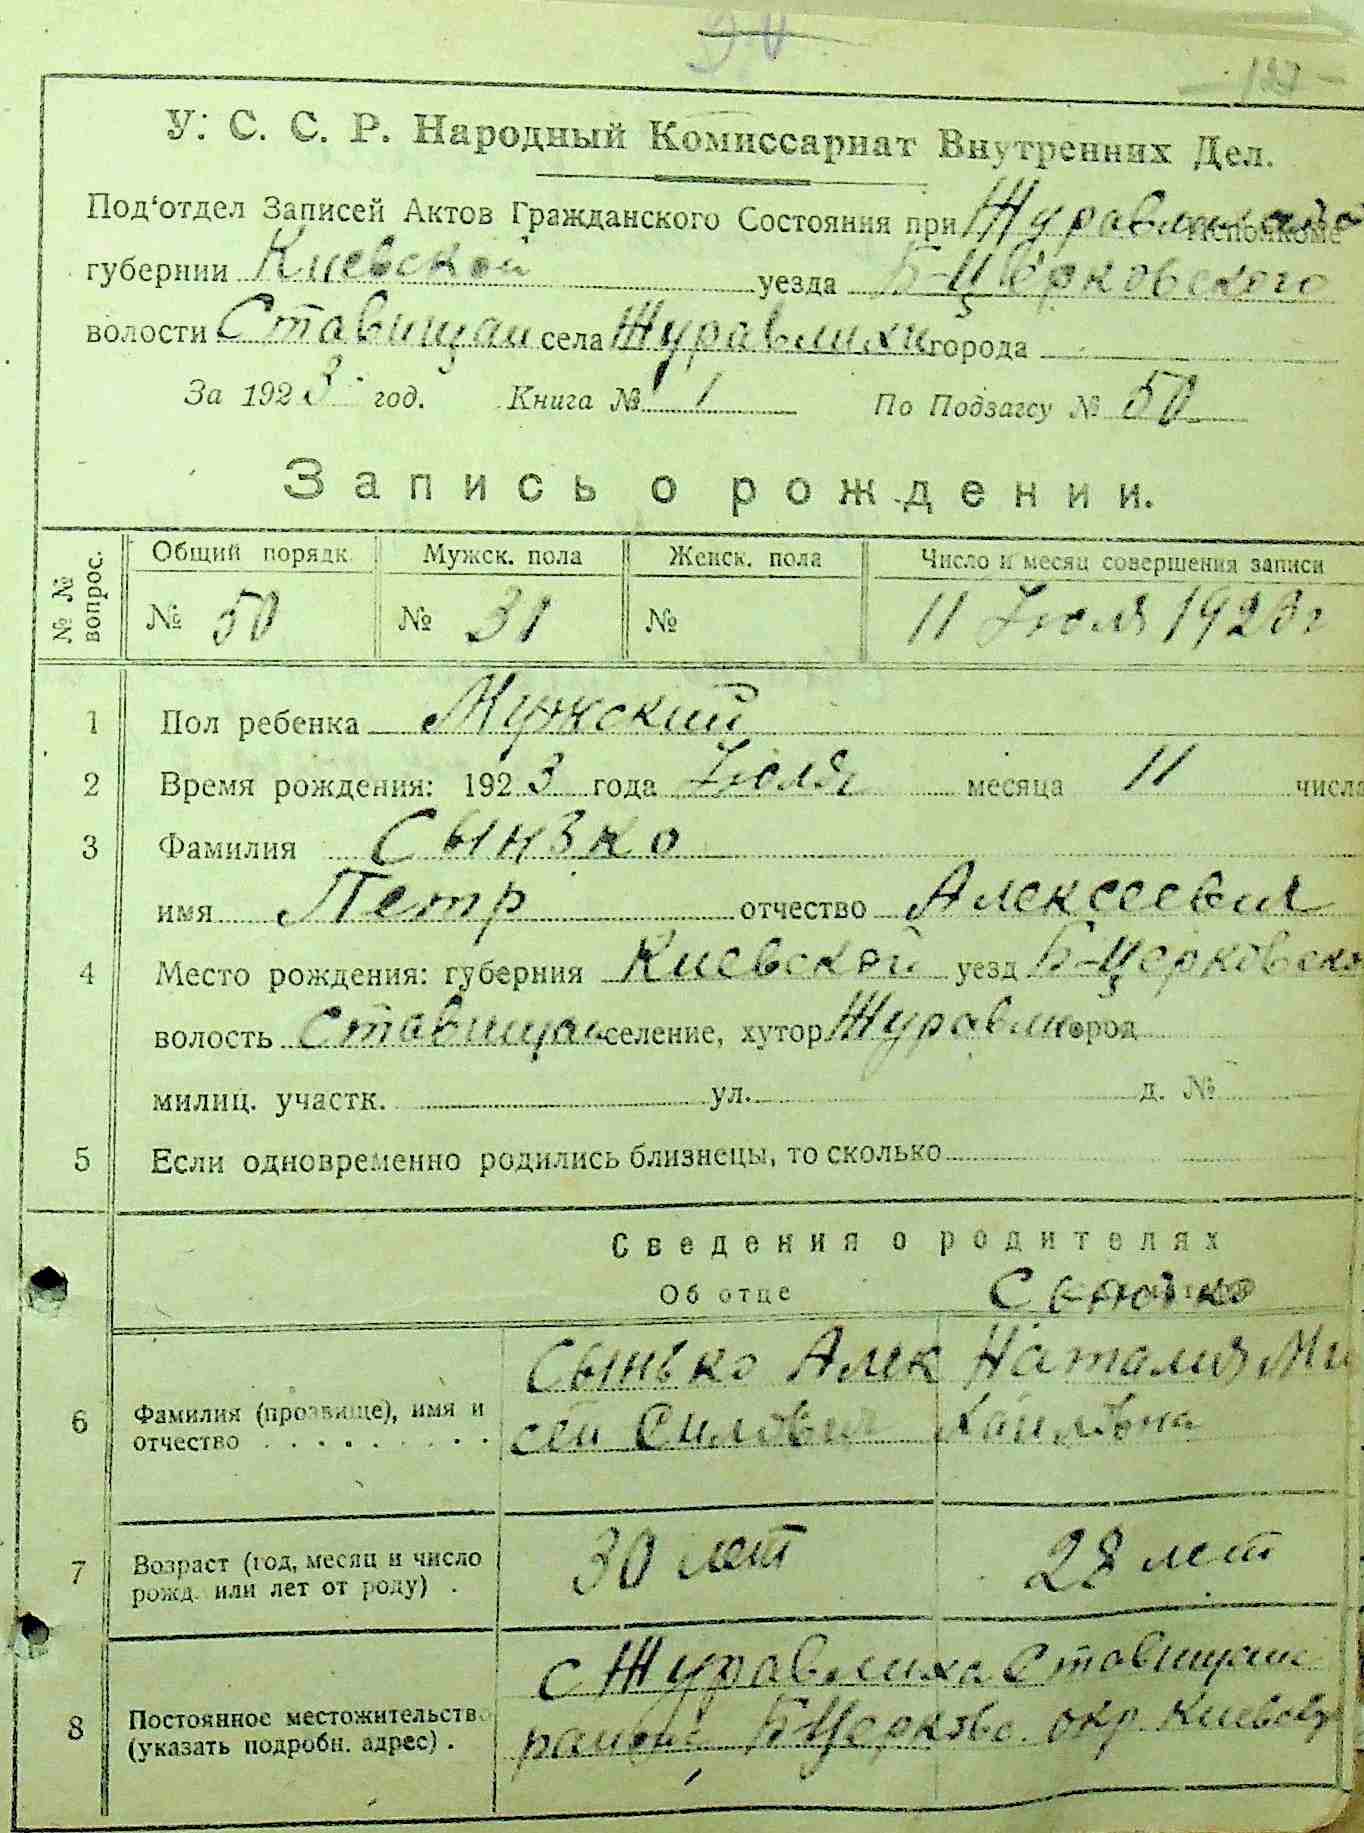 — 127 —
У. С. С. Р. Народный Комиссариат Внутренних Дел.
Под‘отдел Записей Актов Гражданского Состояния при Исполкоме
губернии Киевской уезда Б-Церковского
волости Ставищан села Журавлихи города
За 1923 год. Книга № 1 По Подзагсу № 50
Запись о рождении.
№ № вопрос. Общий порядк. Мужск. пола Женск. пола Число и месяц совершения записи
№ 50 № 31 № 11 Июля 1923 г
1 Пол ребенка Мужский
2 Время рождения: 1923 года Июля месяца 11 числа
3 Фамилия Сынько
имя Петр отчество Алексеевич
4 Место рождения: губерния Киевской уезд Б-Церковско
волость Ставищан селение, хутор Журавли город
милиц. участк. ул. д. №
5 Если одновременно родились близнецы, то сколько
Сведения о родителях
Об отце Сынько
6 Фамилия (прозвище), имя и Сынько Алек Наталия Ми
отчество сей Силович хайловна
7 Возраст (год, месяц и число 30 лет 28 лет
рожд. или лет от роду) .
8 Постоянное местожительство с Журавлиха Ставищан
(указать подробн. адрес) . района Б Церковс. окр.